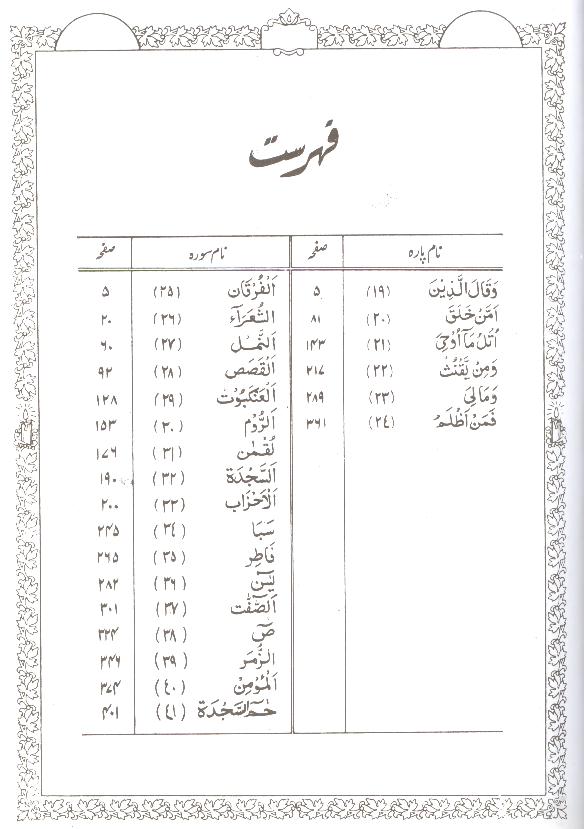 فہرست
نام پارہ صفحہ نام سورہ صفحہ
وَقَالَ الَّذِيْنَ (۱۹) ۵ اَلْفُرْقَان (۲۵) ۵
اَمَّنْ خَلَقَ (۲۰) ۸۱ اَلشُّعَرَآء (۲۶) ۲۰
اُتْلُ مَآ اُوْحِیَ (۲۱) ۱۴۳ اَلنَّمْل (۲۷) ۶۰
وَمِنْ يَّقْنُتْ (۲۲) ۲۱۷ اَلْقَصَص (۲۸) ۹۲
وَمَا لِیَ (۲۳) ۲۸۹ اَلْعَنْكَبُوْت (۲۹) ۱۲۸
فَمَنْ اَظْلَمُ (۲۴) ۳۶۱ اَلرُّوْم (۳۰) ۱۵۳
لُقْمٰن (۳۱) ۱۷۶
اَلسَّجْدَة (۳۲) ۱۹۰
اَلْاَحْزَاب (۳۳) ۲۰۰
سَبَا (۳۴) ۲۴۵
فَاطِر (۳۵) ۲۶۵
يٰسٓ (۳۶) ۲۸۲
اَلصّٰٓفّٰت (۳۷) ۳۰۱
صٓ (۳۸) ۳۲۴
اَلزُّمَر (۳۹) ۳۴۶
اَلْمُؤْمِنْ (۴۰) ۳۷۴
حٰمٓ السَّجْدَة (۴۱) ۴۰۱